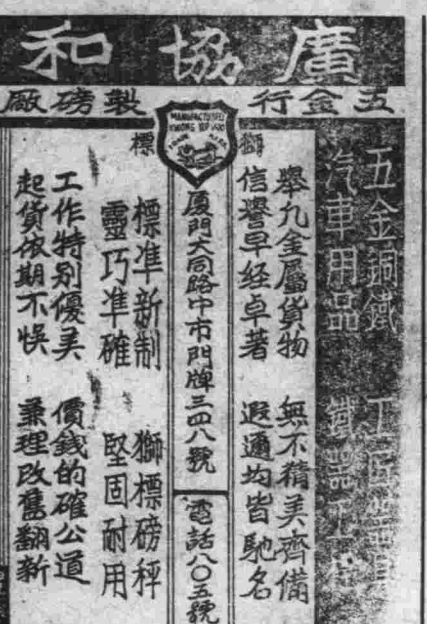 廣協和
五金行
製磅廠
獅標
MANUFACTURED
五金銅鐵
汽車用品
舉凡金屬貨物 無不精美齊備
信譽早经卓著 遐邇均皆馳名
廈門大同路中市門牌三四八號
電話八〇五號
標準新制 獅標磅秤
靈巧準確 堅固耐用
工作特别優美 價錢的確公道
起貨依期不悞 兼理改舊翻新